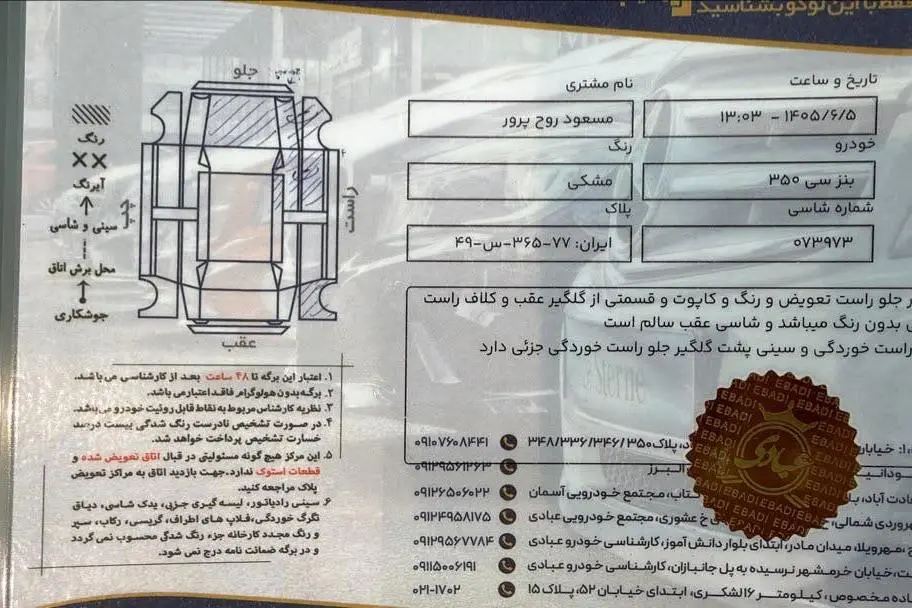 فقط با این لوگو بشناسید
تاریخ و ساعت
نام مشتری
۱۴۰۵/۶/۵ - ۱۳:۰۳
مسعود روح پرور
خودرو
رنگ
بنز سی ۳۵۰
مشکی
شماره شاسی
پلاک
۰۷۳۹۷۳
ایران: ۷۷-۳۶۵-س-۴۹
جلو راست تعویض و رنگ و کاپوت و قسمتی از گلگیر عقب و کلاف راست
بدون رنگ میباشد و شاسی عقب سالم است
راست خوردگی و سینی پشت گلگیر جلو راست خوردگی جزئی دارد
جلو
راست
چپ
عقب
رنگ
××
آبرنگ
سینی و شاسی
محل برش اتاق
جوشکاری
۱. اعتبار این برگه تا ۴۸ ساعت بعد از کارشناسی می باشد.
۲. برگه بدون هولوگرام فاقد اعتبار می باشد.
۳. نظریه کارشناس مربوط به نقاط قابل روئیت خودرو می‌باشد.
۴. در صورت تشخیص نادرست رنگ شدگی بیست درصد
خسارت تشخیص پرداخت خواهد شد.
۵. این مرکز هیچ گونه مسئولیتی در قبال اتاق تعویض شده و
قطعات استوک ندارد. جهت بازدید اتاق به مراکز تعویض
پلاک مراجعه کنید.
۶. سینی رادیاتور، لیسه گیری جزیی، یدک شاسی، دیاق
تگرگ خوردگی، فلاپ های اطراف، گریسی، رکاب، سپر
و رنگ مجدد کارخانه جزء رنگ شدگی محسوب نمی گردد
و در برگه ضمانت نامه درج نمی شود.
پلاک ۳۴۸/۳۳۶/۳۴۶/۳۵۰ ۰۹۱۰۷۶۰۸۴۴۱
البرز ۰۹۱۲۹۵۶۱۲۶۳
مجتمع خودرویی آسمان ۰۹۱۲۶۵۰۶۰۲۲
سهروردی شمالی، خ عشوری، مجتمع خودرویی عبادی ۰۹۱۲۴۹۵۸۱۷۵
مهرویلا، میدان مادر، ابتدای بلوار دانش آموز، کارشناسی خودرو عبادی ۰۹۱۲۹۵۶۷۷۸۴
خیابان خرمشهر نرسیده به پل جانبازان، کارشناسی خودرو عبادی ۰۹۱۱۵۰۰۶۱۹۱
جاده مخصوص، کیلومتر ۱۶ لشکری، ابتدای خیابان ۵۲، پلاک ۱۵ ۰۲۱-۱۷۰۲
عبادی
EBADI EBADI EBADI